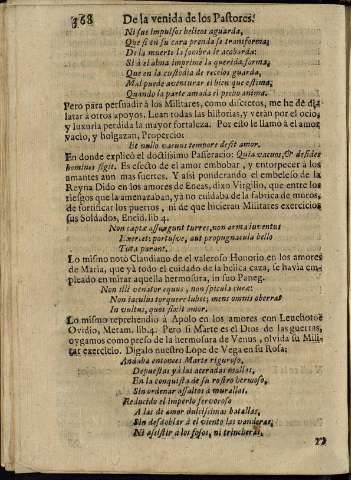 368 De la venida de los Pastores.
Ni sus impulsos belicos aguarda,
Que si en su cara prenda se transforma,
De la muerte la sombra le acobarda:
Si à el alma imprime la querida forma,
Que en la custodia de recelos guarda,
Mal puede aventurar el bien que estima,
Quando la parte amada el pecho anima.
Pero para persuadir à los Militares, como discretos, me he de di-
latar à otros apoyos. Lean todas las historias, y veràn por el ocio,
y luxuria perdida la mayor fortaleza. Por esto le llamò à el amor
vacio, y holgazan, Propercio:
Et nullo vacuus tempore desit amor.
En donde explicò el doctissimo Passeracio: Quia vacuos, & desides
homines figit. Es efecto de el amor embobar, y entorpecer à los
amantes aun mas fuertes. Y assi ponderando el embeleso de la
Reyna Dido en los amores de Eneas, dixo Virgilio, que entre los
riesgos que la amenazaban, yà no cuidaba de la fabrica de muros,
de fortificar los puertos, ni de que hicieran Militares exercicios
sus Soldados, Eneid. lib. 4.
Non captæ assurgunt turres, non arma iuventus
Exercet; portusve, aut propugnacula bello
Tuta parant.
Lo mismo notò Claudiano de el valeroso Honorio en los amores
de Maria, que yà todo el cuidado de la belica caza, se havia em-
pleado en mirar aquella hermosura, in suo Paneg.
Non illi venator equus, non spicula curæ:
Non iaculum torquere lubet; mens omnis aberrat
In vultus, quos fixit amor.
Lo mismo reprehendiò à Apolo en los amores con Leuchotoe
Ovidio, Metam. lib. 4. Pero si Marte es el Dios de las guerras,
oygamos como preso de la hermosura de Venus, olvida su Mili-
tar exercicio. Digalo nuestro Lope de Vega en su Rosa:
Andaba entonces Marte riguroso,
Depuestas yà las aceradas mallas,
En la conquista de su rostro hermoso,
Sin ordenar assaltos à murallas.
Reducido el imperio fervoroso
A las de amor dulcissimas batallas,
Sin desdoblar à el viento las vanderas,
Ni assistir à los fosos, ni trincheras,